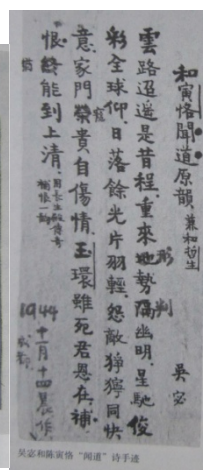 和寅恪聞道原韻 兼和哲生
吳宓
雲路迢遥是昔程重來地勢隔幽明星馳俊
形判
彩全球仰日落餘光片羽輕怨敵猙獰同快
意家門榮貴自傷情玉環雖死君恩在補
寵
恨終能到上清
1944十二月十四晨作
吴宓和陈寅恪“闻道”诗手迹